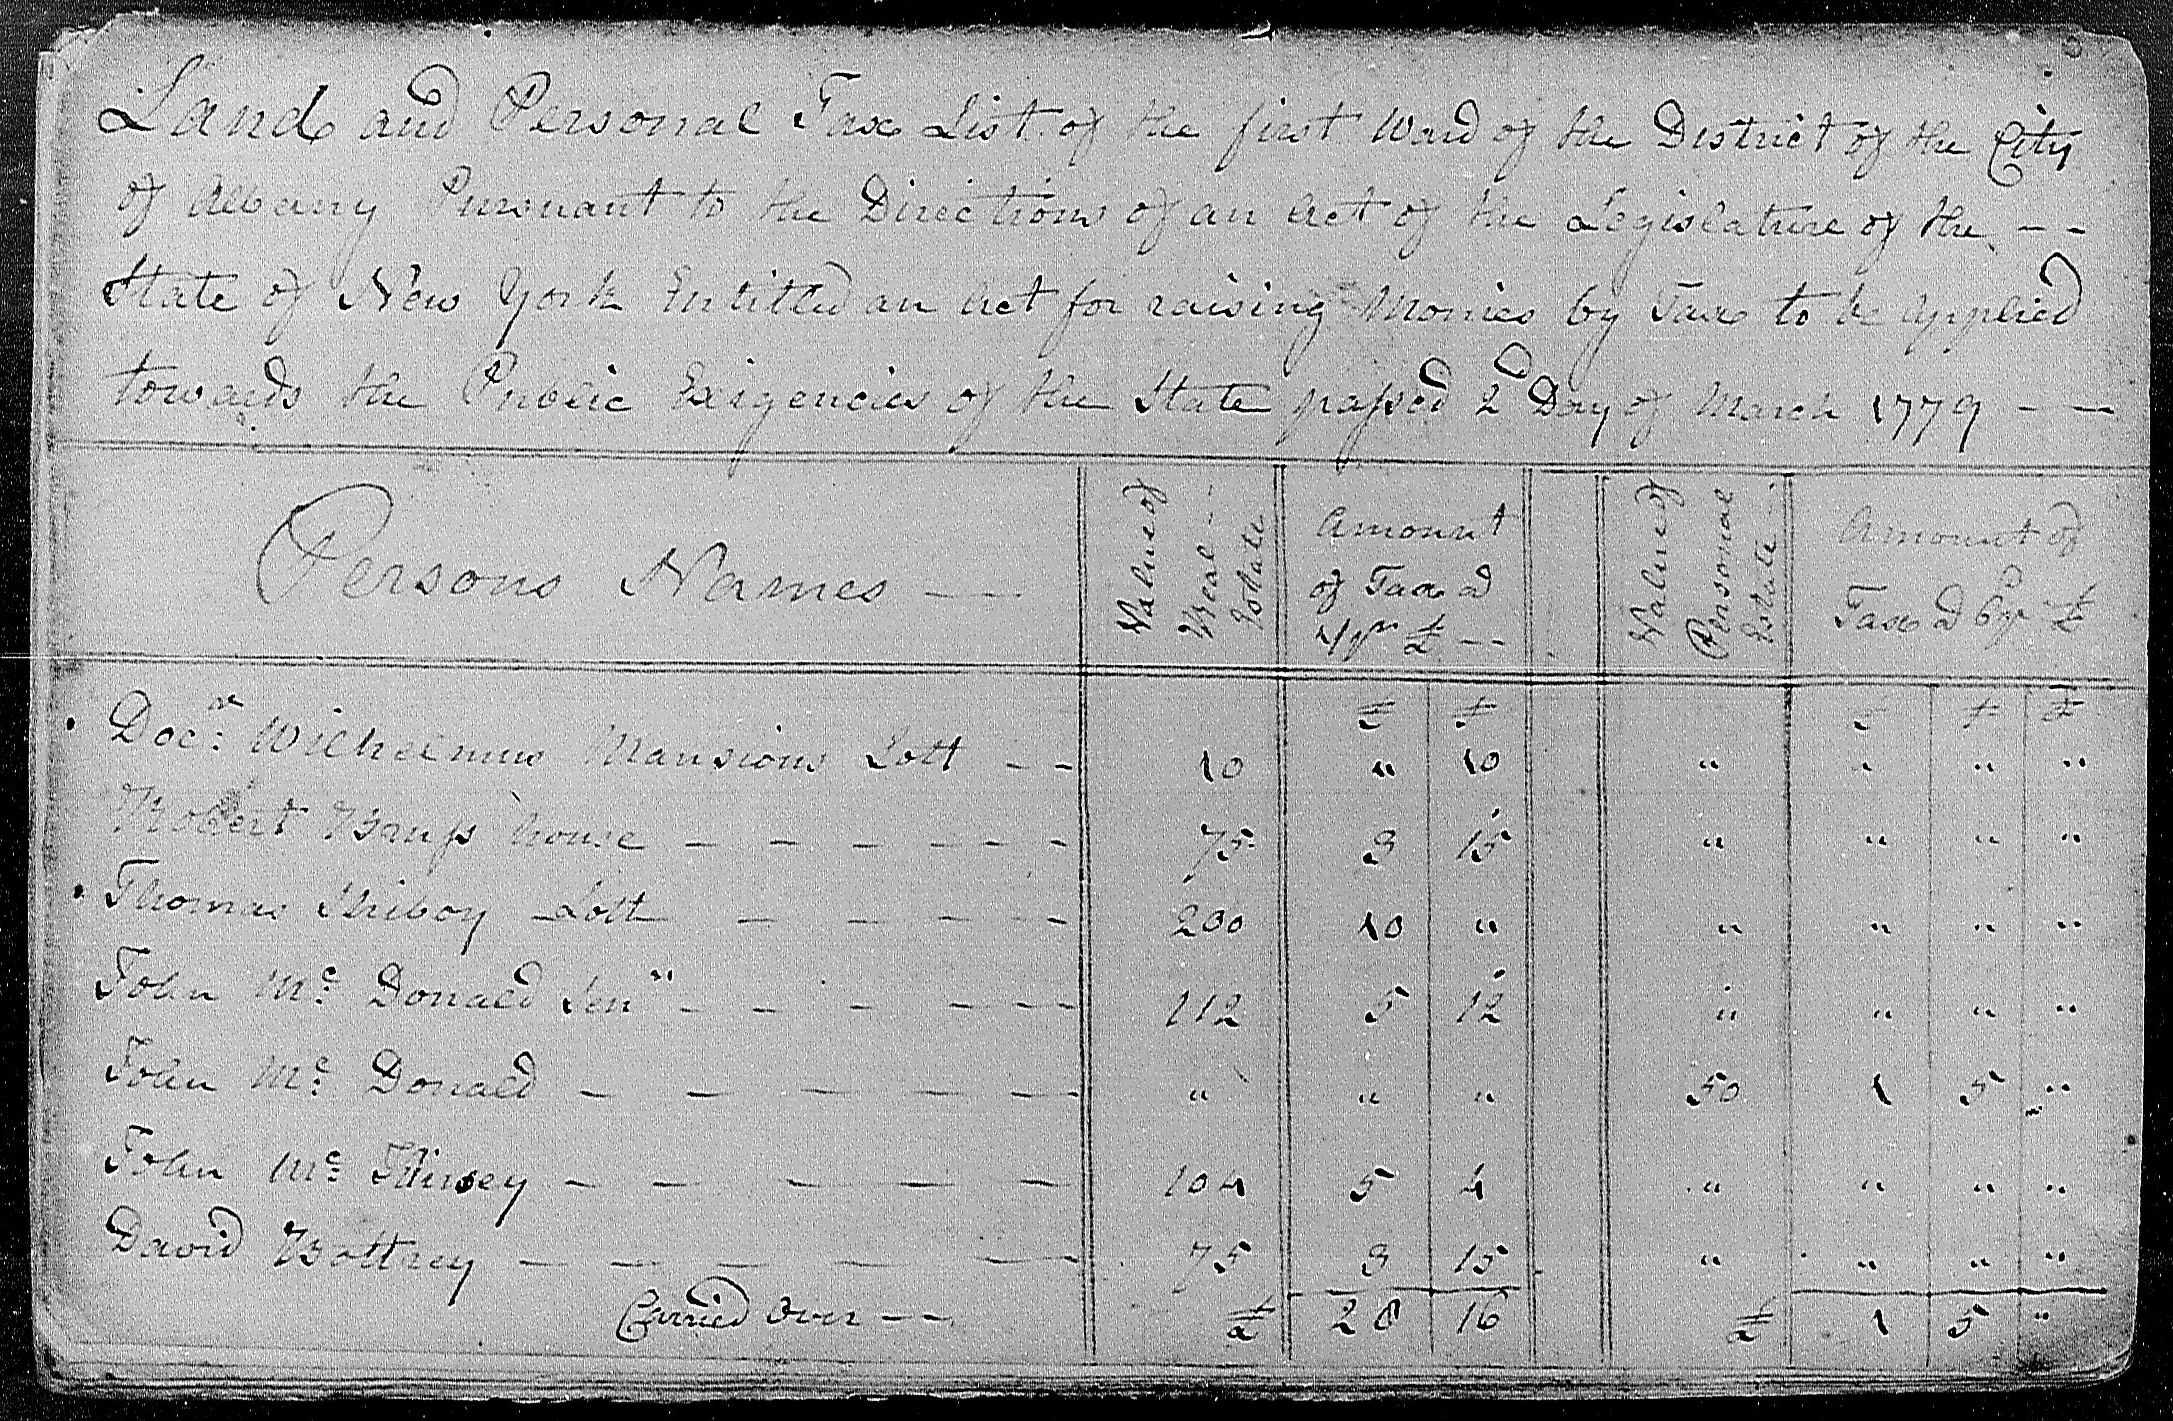 Land and Personal Tax List of the first Ward of the District of the City
of Albany Pursuant to the Directions of an Act of the Legislature of the --
State of New York Entitled an Act for raising Monies by Tax to be applied
towards the Public Exigencies of the State passed 2d Day of March 1779 --
Persons Names -- Value of Real Estate Amount of Tax a 1/ pr £ -- Value of Personal Estate Amount of Tax a 6d pr £
Docr: Wilhelmus Mansions Lott -- 10 " 10 " " " "
Robert house - - - - - - 75 3 15 " " " "
Thomas Lott - - - - - 200 10 " " " " "
John Mc: Donald Senr - - - - - - 112 5 12 " " " "
John Mc: Donald - - - - - " " " 50 1 5 "
John Mc: - - - - - 104 5 4 " " " "
David - - - - - 75 3 15 " " " "
Carried Over -- £ 28 16 £ 1 5 "